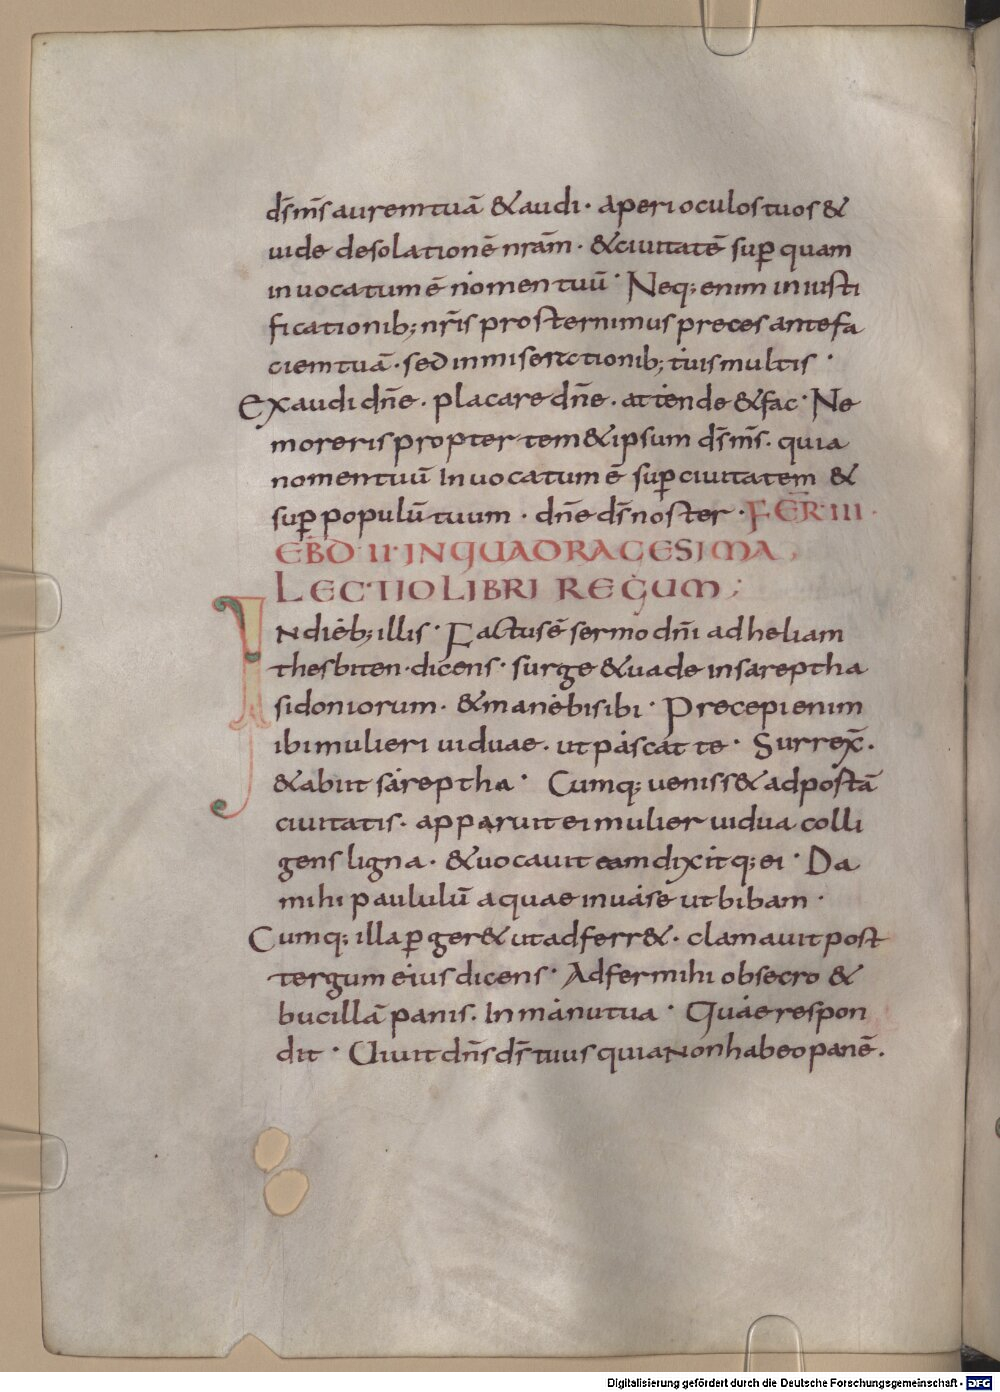 d̄s m̄s aurem tuā & audi · aperi oculos tuos &
uide desolationē nrām · & ciuitatē sup quam
inuocatum ē nomen tuū · Neq; enim in iusti
ficationib; nr̄is prosternimus preces ante fa
ciem tuā · sed in miserationib; tuis multis ·
Exaudi dn̄e · placare dn̄e · attende & fac · Ne
moreris propter temetipsum d̄s m̄s · quia
nomen tuū Inuocatum ē sup ciuitatem &
sup populū tuum · dn̄e d̄s noster · FER̄ · III ·
EB̄D · II · IN QUADRAGESIMA
LECTIO LIBRI REGUM ;
IN dieb; illis · Factus ē sermo dn̄i ad heliam
thesbiten · dicens · surge & uade in sareptha
sidoniorum · & manebis ibi · Precepi enim
ibi mulieri uiduae · ut pascat te · Surrex̄ ·
& abiit sareptha · Cumq; ueniss& ad portā
ciuitatis · apparuit ei mulier uidua colli
gens ligna · & uocauit eam dixitq; ei · Da
mihi paululū aquae in uase ut bibam ·
Cumq; illa p ger& ut adferr& · clamauit post
tergum eius dicens · Adfer mihi obsecro &
bucillā panis · In manu tua · Quae respon
dit · Uiuit dn̄s d̄s tuus quia Non habeo panē ·
Digitalisierung gefördert durch die Deutsche Forschungsgemeinschaft - DFG